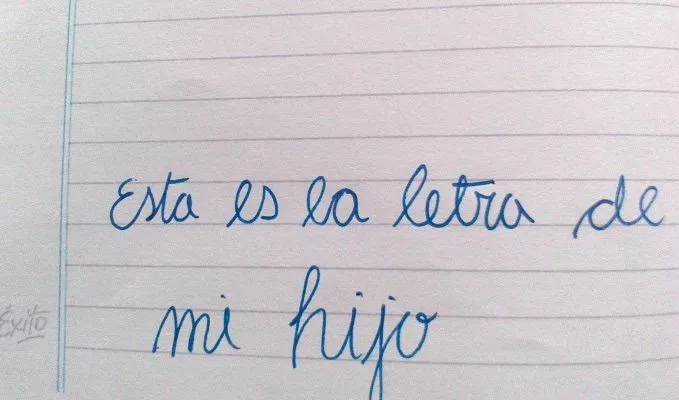 Esta es la letra de
mi hijo
Éxito